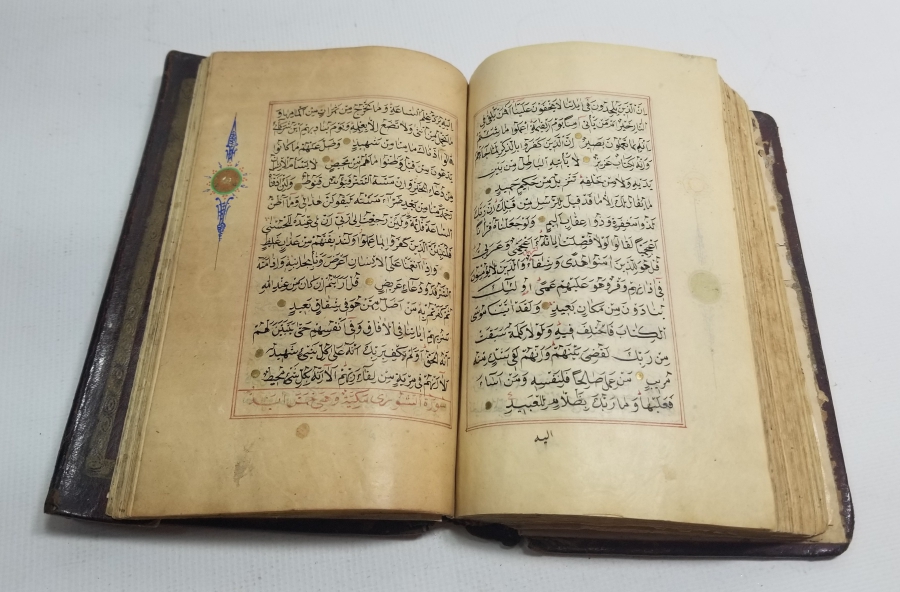 ان الذين يلحدون في اياتنا لا يخفون علينا افمن يلقى في
النار خير ام من يأتي امنا يوم القيمة اعملوا ما شئتم
انه بما تعملون بصير ان الذين كفروا بالذكر لما جاءهم
وانه لكتاب عزيز لا يأتيه الباطل من بين
يديه ولا من خلفه تنزيل من حكيم حميد
ما يقال لك الا ما قد قيل للرسل من قبلك ان ربك
لذو مغفرة وذو عقاب اليم ولو جعلناه قرانا
اعجميا لقالوا لولا فصلت اياته ءاعجمي وعربي
قل هو للذين امنوا هدى وشفاء والذين لا يؤمنون
في اذانهم وقر وهو عليهم عمى اولئك
ينادون من مكان بعيد ولقد اتينا موسى
الكتاب فاختلف فيه ولولا كلمة سبقت
من ربك لقضي بينهم وانهم لفي شك منه
مريب من عمل صالحا فلنفسه ومن اساء
فعليها وما ربك بظلام للعبيد
اليه
اليه يرد علم الساعة وما تخرج من ثمرات من اكمامها و
ما تحمل من انثى ولا تضع الا بعلمه ويوم يناديهم اين شركائي
قالوا اذناك ما منا من شهيد وضل عنهم ما كانوا
يدعون من قبل وظنوا ما لهم من محيص لا يسأم الانسان
من دعاء الخير وان مسه الشر فيؤس قنوط ولئن اذقناه
رحمة منا من بعد ضراء مسته ليقولن هذا لي وما اظن
الساعة قائمة ولئن رجعت الى ربي ان لي عنده للحسنى
فلننبئن الذين كفروا بما عملوا ولنذيقنهم من عذاب غليظ
واذا انعمنا على الانسان اعرض ونأى بجانبه واذا مسه
الشر فذو دعاء عريض قل ارأيتم ان كان من عند الله
ثم كفرتم به من اضل ممن هو في شقاق بعيد
سنريهم اياتنا في الافاق وفي انفسهم حتى يتبين لهم
انه الحق اولم يكف بربك انه على كل شيء شهيد
الا انهم في مرية من لقاء ربهم الا انه بكل شيء محيط
سورة الشورى مكية وهي